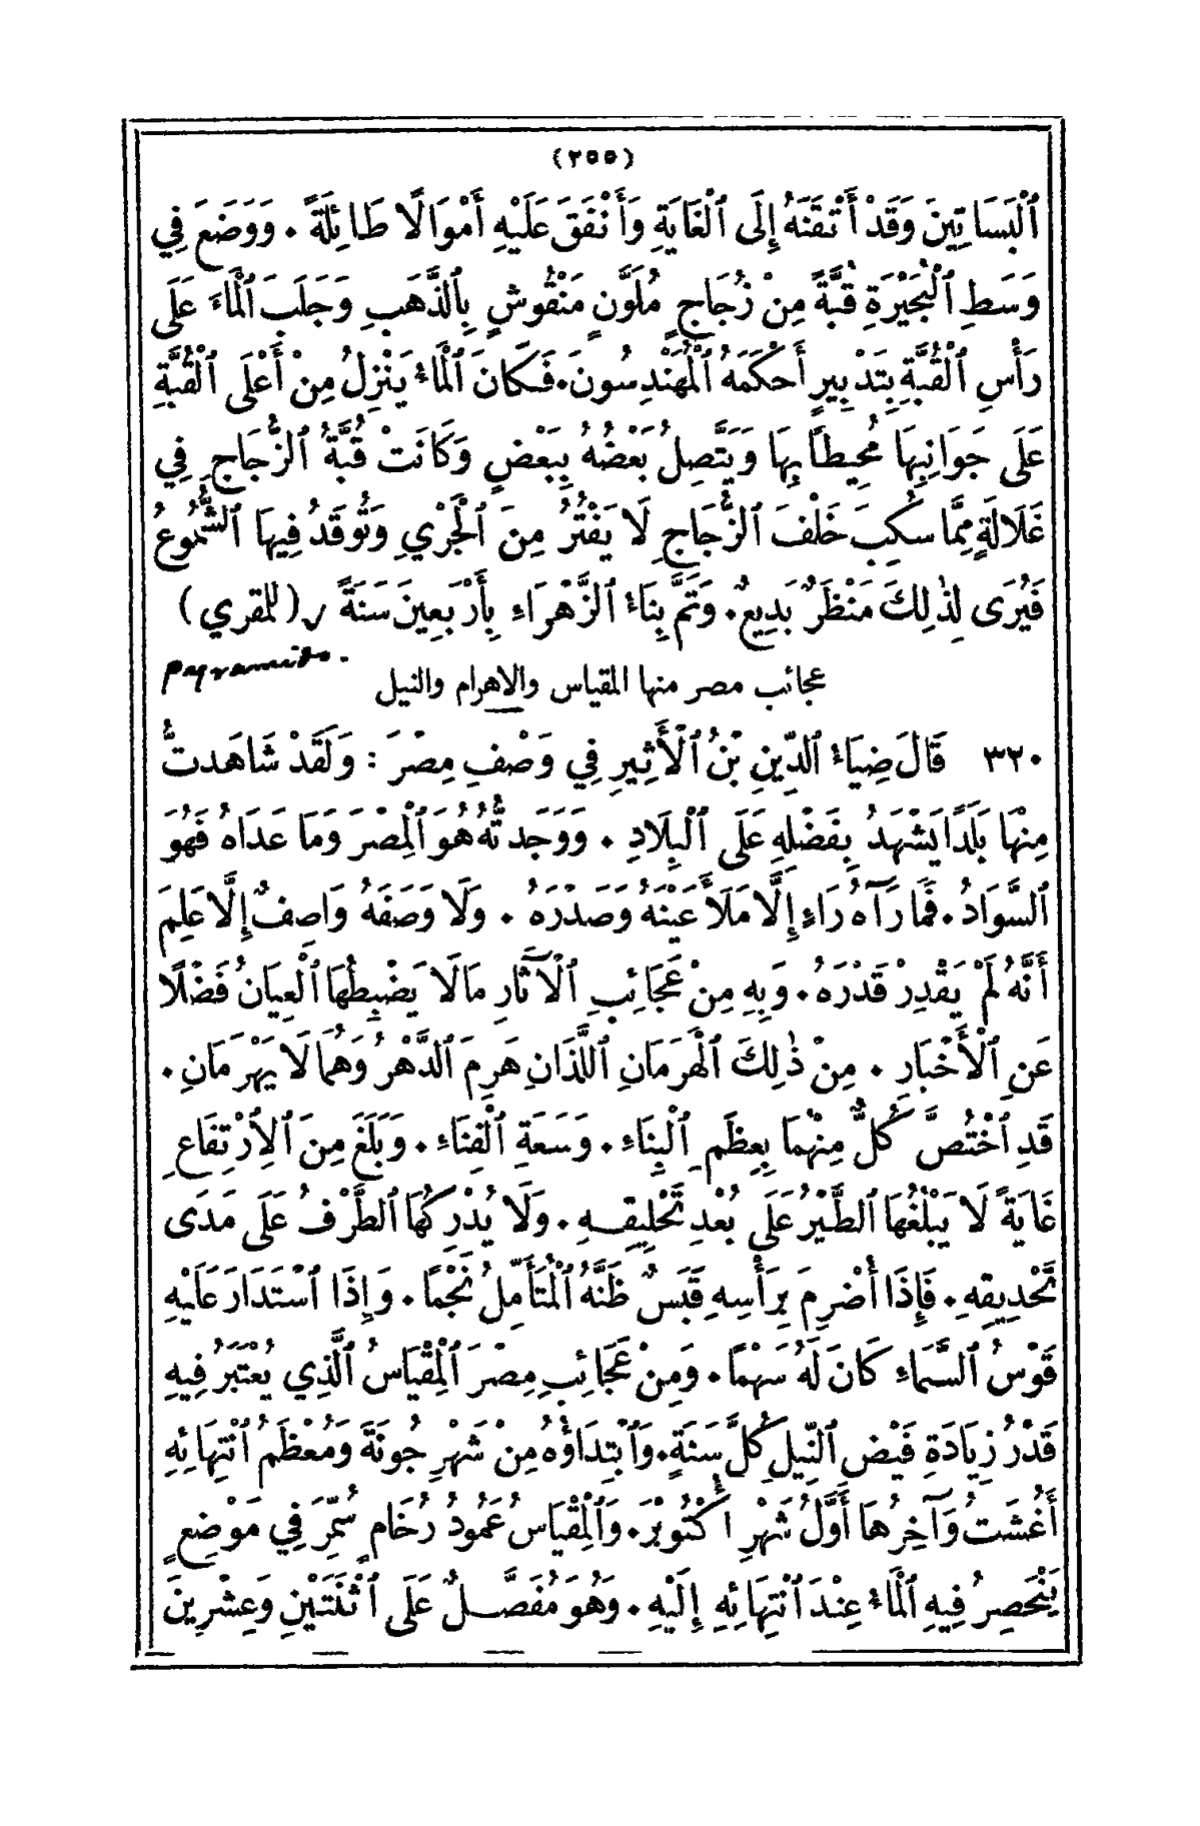 (٢٥٥)
ٱلْبَسَاتِينَ وَقَدْ أَتْقَنَهُ إِلَى ٱلْغَايَةِ وَأَنْفَقَ عَلَيْهِ أَمْوَالًا طَائِلَةً . وَوَضَعَ فِي
وَسَطِ ٱلْبُحَيْرَةِ قُبَّةً مِنْ زُجَاجٍ مُلَوَّنٍ مَنْقُوشٍ بِٱلذَّهَبِ وَجَلَبَ ٱلْمَاءَ عَلَى
رَأْسِ ٱلْقُبَّةِ بِتَدْبِيرٍ أَحْكَمَهُ ٱلْمُهَنْدِسُونَ . فَكَانَ ٱلْمَاءُ يَنْزِلُ مِنْ أَعْلَى ٱلْقُبَّةِ
عَلَى جَوَانِبِهَا مُحِيطًا بِهَا وَيَتَّصِلُ بَعْضُهُ بِبَعْضٍ وَكَانَتْ قُبَّةُ ٱلزُّجَاجِ فِي
غَلَالَةٍ مِمَّا سُكِبَ خَلْفَ ٱلزُّجَاجِ لَا يَفْتُرُ مِنَ ٱلْجَرْيِ وَتُوقَدُ فِيهَا ٱلشُّمُوعُ
فَيُرَى لِذٰلِكَ مَنْظَرٌ بَدِيعٌ . وَتَمَّ بِنَاءُ ٱلزَّهْرَاءِ بِأَرْبَعِينَ سَنَةً (للمقري)
عجائب مصر منها المقياس والاهرام والنيل
٣٢٠ قَالَ ضِيَاءُ ٱلدِّينِ بْنُ ٱلْأَثِيرِ فِي وَصْفِ مِصْرَ : وَلَقَدْ شَاهَدتُّ
مِنْهَا بَلَدًا يَشْهَدُ بِفَضْلِهِ عَلَى ٱلْبِلَادِ . وَوَجَدتُّهُ هُوَ ٱلْمِصْرَ وَمَا عَدَاهُ فَهُوَ
ٱلسَّوَادُ . فَمَا رَآهُ رَاءٍ إِلَّا مَلَأَ عَيْنَهُ وَصَدْرَهُ . وَلَا وَصَفَهُ وَاصِفٌ إِلَّا عَلِمَ
أَنَّهُ لَمْ يَقْدِرْ قَدْرَهُ . وَبِهِ مِنْ عَجَائِبِ ٱلْآثَارِ مَا لَا يَضْبِطُهَا ٱلْعِيَانُ فَضْلًا
عَنِ ٱلْأَخْبَارِ . مِنْ ذٰلِكَ ٱلْهَرَمَانِ ٱللَّذَانِ هَرِمَ ٱلدَّهْرُ وَهُمَا لَا يَهْرَمَانِ .
قَدِ ٱخْتُصَّ كُلٌّ مِنْهُمَا بِعِظَمِ ٱلْبِنَاءِ . وَسَعَةِ ٱلْفِنَاءِ . وَبَلَغَ مِنَ ٱلِٱرْتِفَاعِ
غَايَةً لَا يَبْلُغُهَا ٱلطَّيْرُ عَلَى بُعْدِ تَحْلِيقِهِ . وَلَا يُدْرِكُهَا ٱلطَّرْفُ عَلَى مَدَى
تَحْدِيقِهِ . فَإِذَا أُضْرِمَ بِرَأْسِهِ قَبَسٌ ظَنَّهُ ٱلْمُتَأَمِّلُ نَجْمًا . وَإِذَا ٱسْتَدَارَ عَلَيْهِ
قَوْسُ ٱلسَّمَاءِ كَانَ لَهُ سَهْمًا . وَمِنْ عَجَائِبِ مِصْرَ ٱلْمِقْيَاسُ ٱلَّذِي يُعْتَبَرُ فِيهِ
قَدْرُ زِيَادَةِ فَيْضِ ٱلنِّيلِ كُلَّ سَنَةٍ . وَٱبْتِدَاؤُهُ مِنْ شَهْرِ جُونَةَ وَمُعْظَمُ ٱنْتِهَائِهِ
أَغُشَتُ وَآخِرُهَا أَوَّلُ شَهْرِ أُكْتُوبْرَ . وَٱلْمِقْيَاسُ عَمُودُ رُخَامٍ سُمِّرَ فِي مَوْضِعٍ
يَنْحَصِرُ فِيهِ ٱلْمَاءُ عِنْدَ ٱنْتِهَائِهِ إِلَيْهِ . وَهُوَ مُفَصَّلٌ عَلَى ٱثْنَتَيْنِ وَعِشْرِينَ